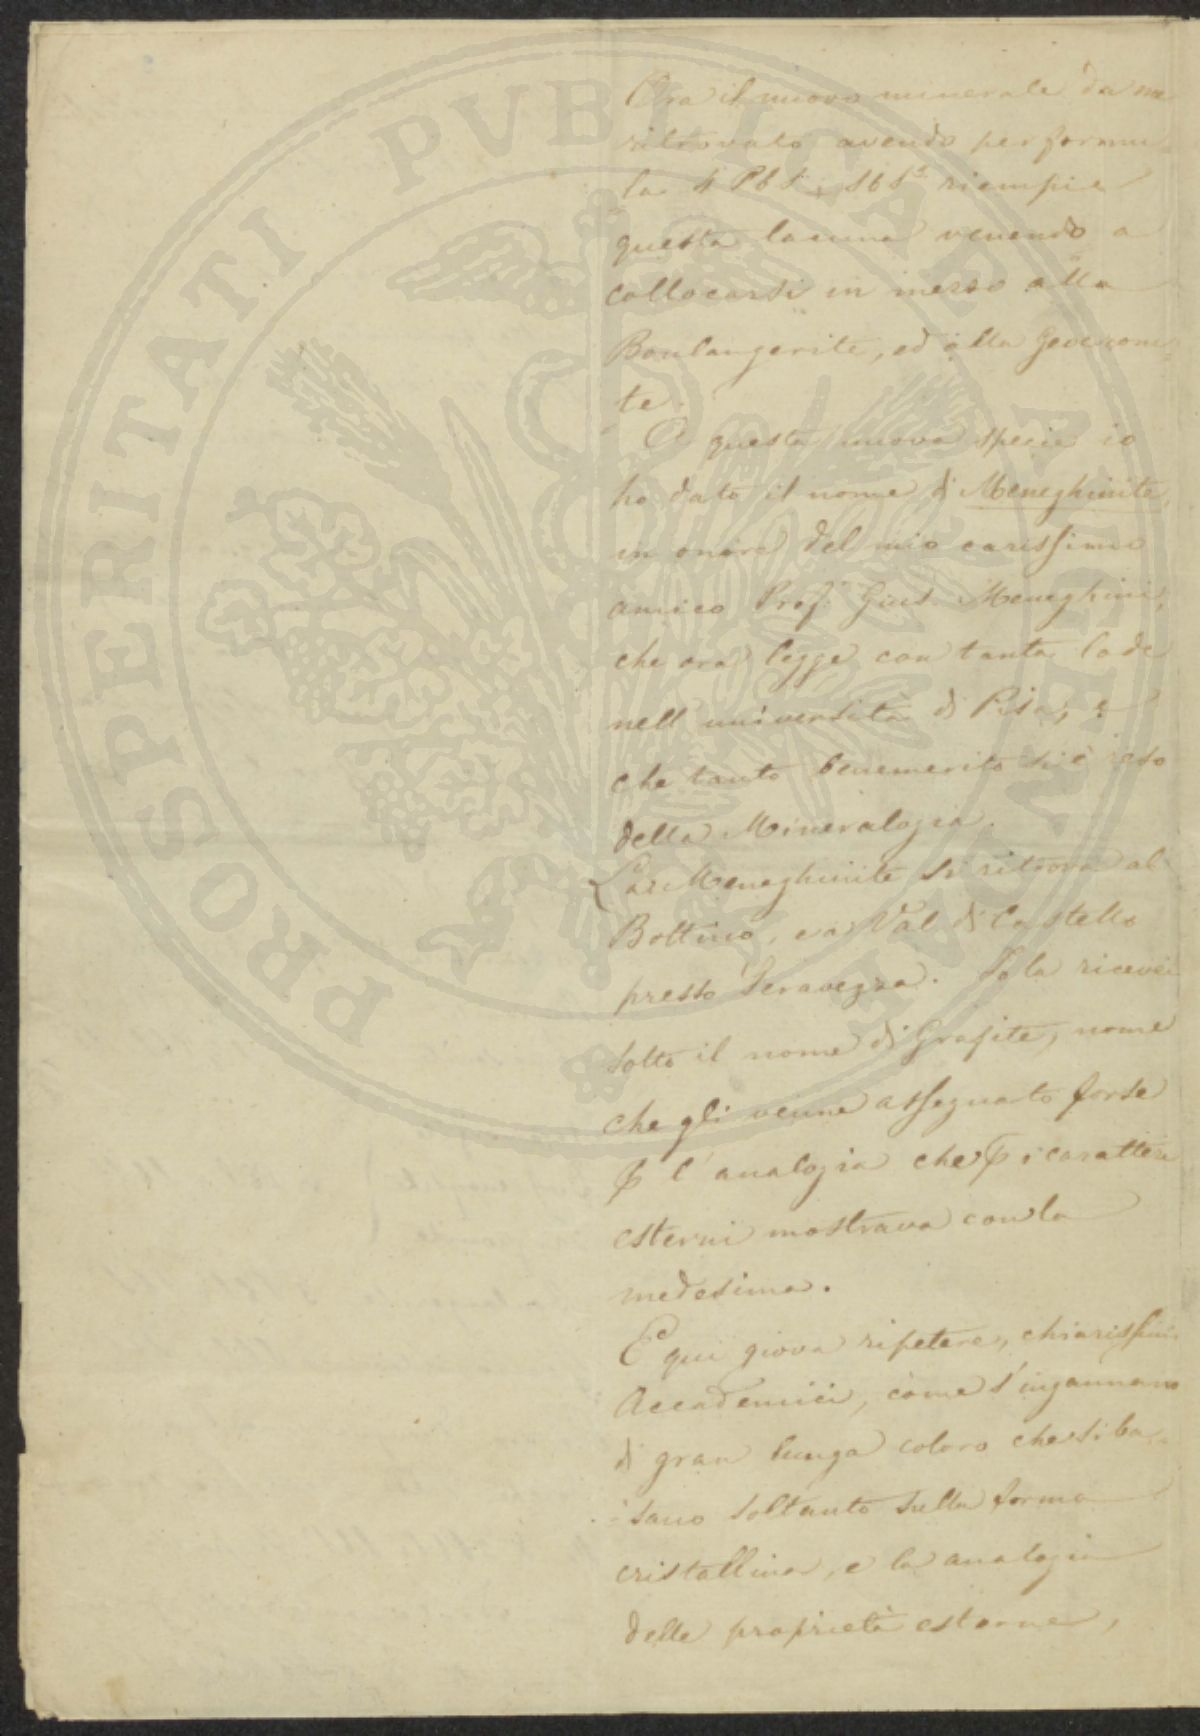 Ora il nuovo minerale da me
ritrovato avendo per formu=
la 4 PbS, SbS³ riempie
questa lacuna venendo a
collocarsi in mezzo alla
Boulangerite, ed alla Geocroni=
te.
A questa nuova specie io
ho dato il nome di Meneghinite,
in onore del mio carissimo
amico Prof. Gius. Meneghini,
che ora legge con tanta lode
nell'università di Pisa; e
che tanto benemerito si è reso
della Mineralogia.
La Meneghinite si ritrova al
Bottino, e a Val di Castello
presso Seravezza. Io la ricevei
sotto il nome di Grafite, nome
che gli venne assegnato forse
p l'analogia che p i caratteri
esterni mostrava con la
medesima.
E qui giova ripetere, chiarissimi
Accademici, come s'ingannano
di gran lunga coloro che si ba=
=sano soltanto sulla forma
cristallina, e la analogia
delle proprietà esterne,
PROSPERITATI PVBLICAE AVGENDAE